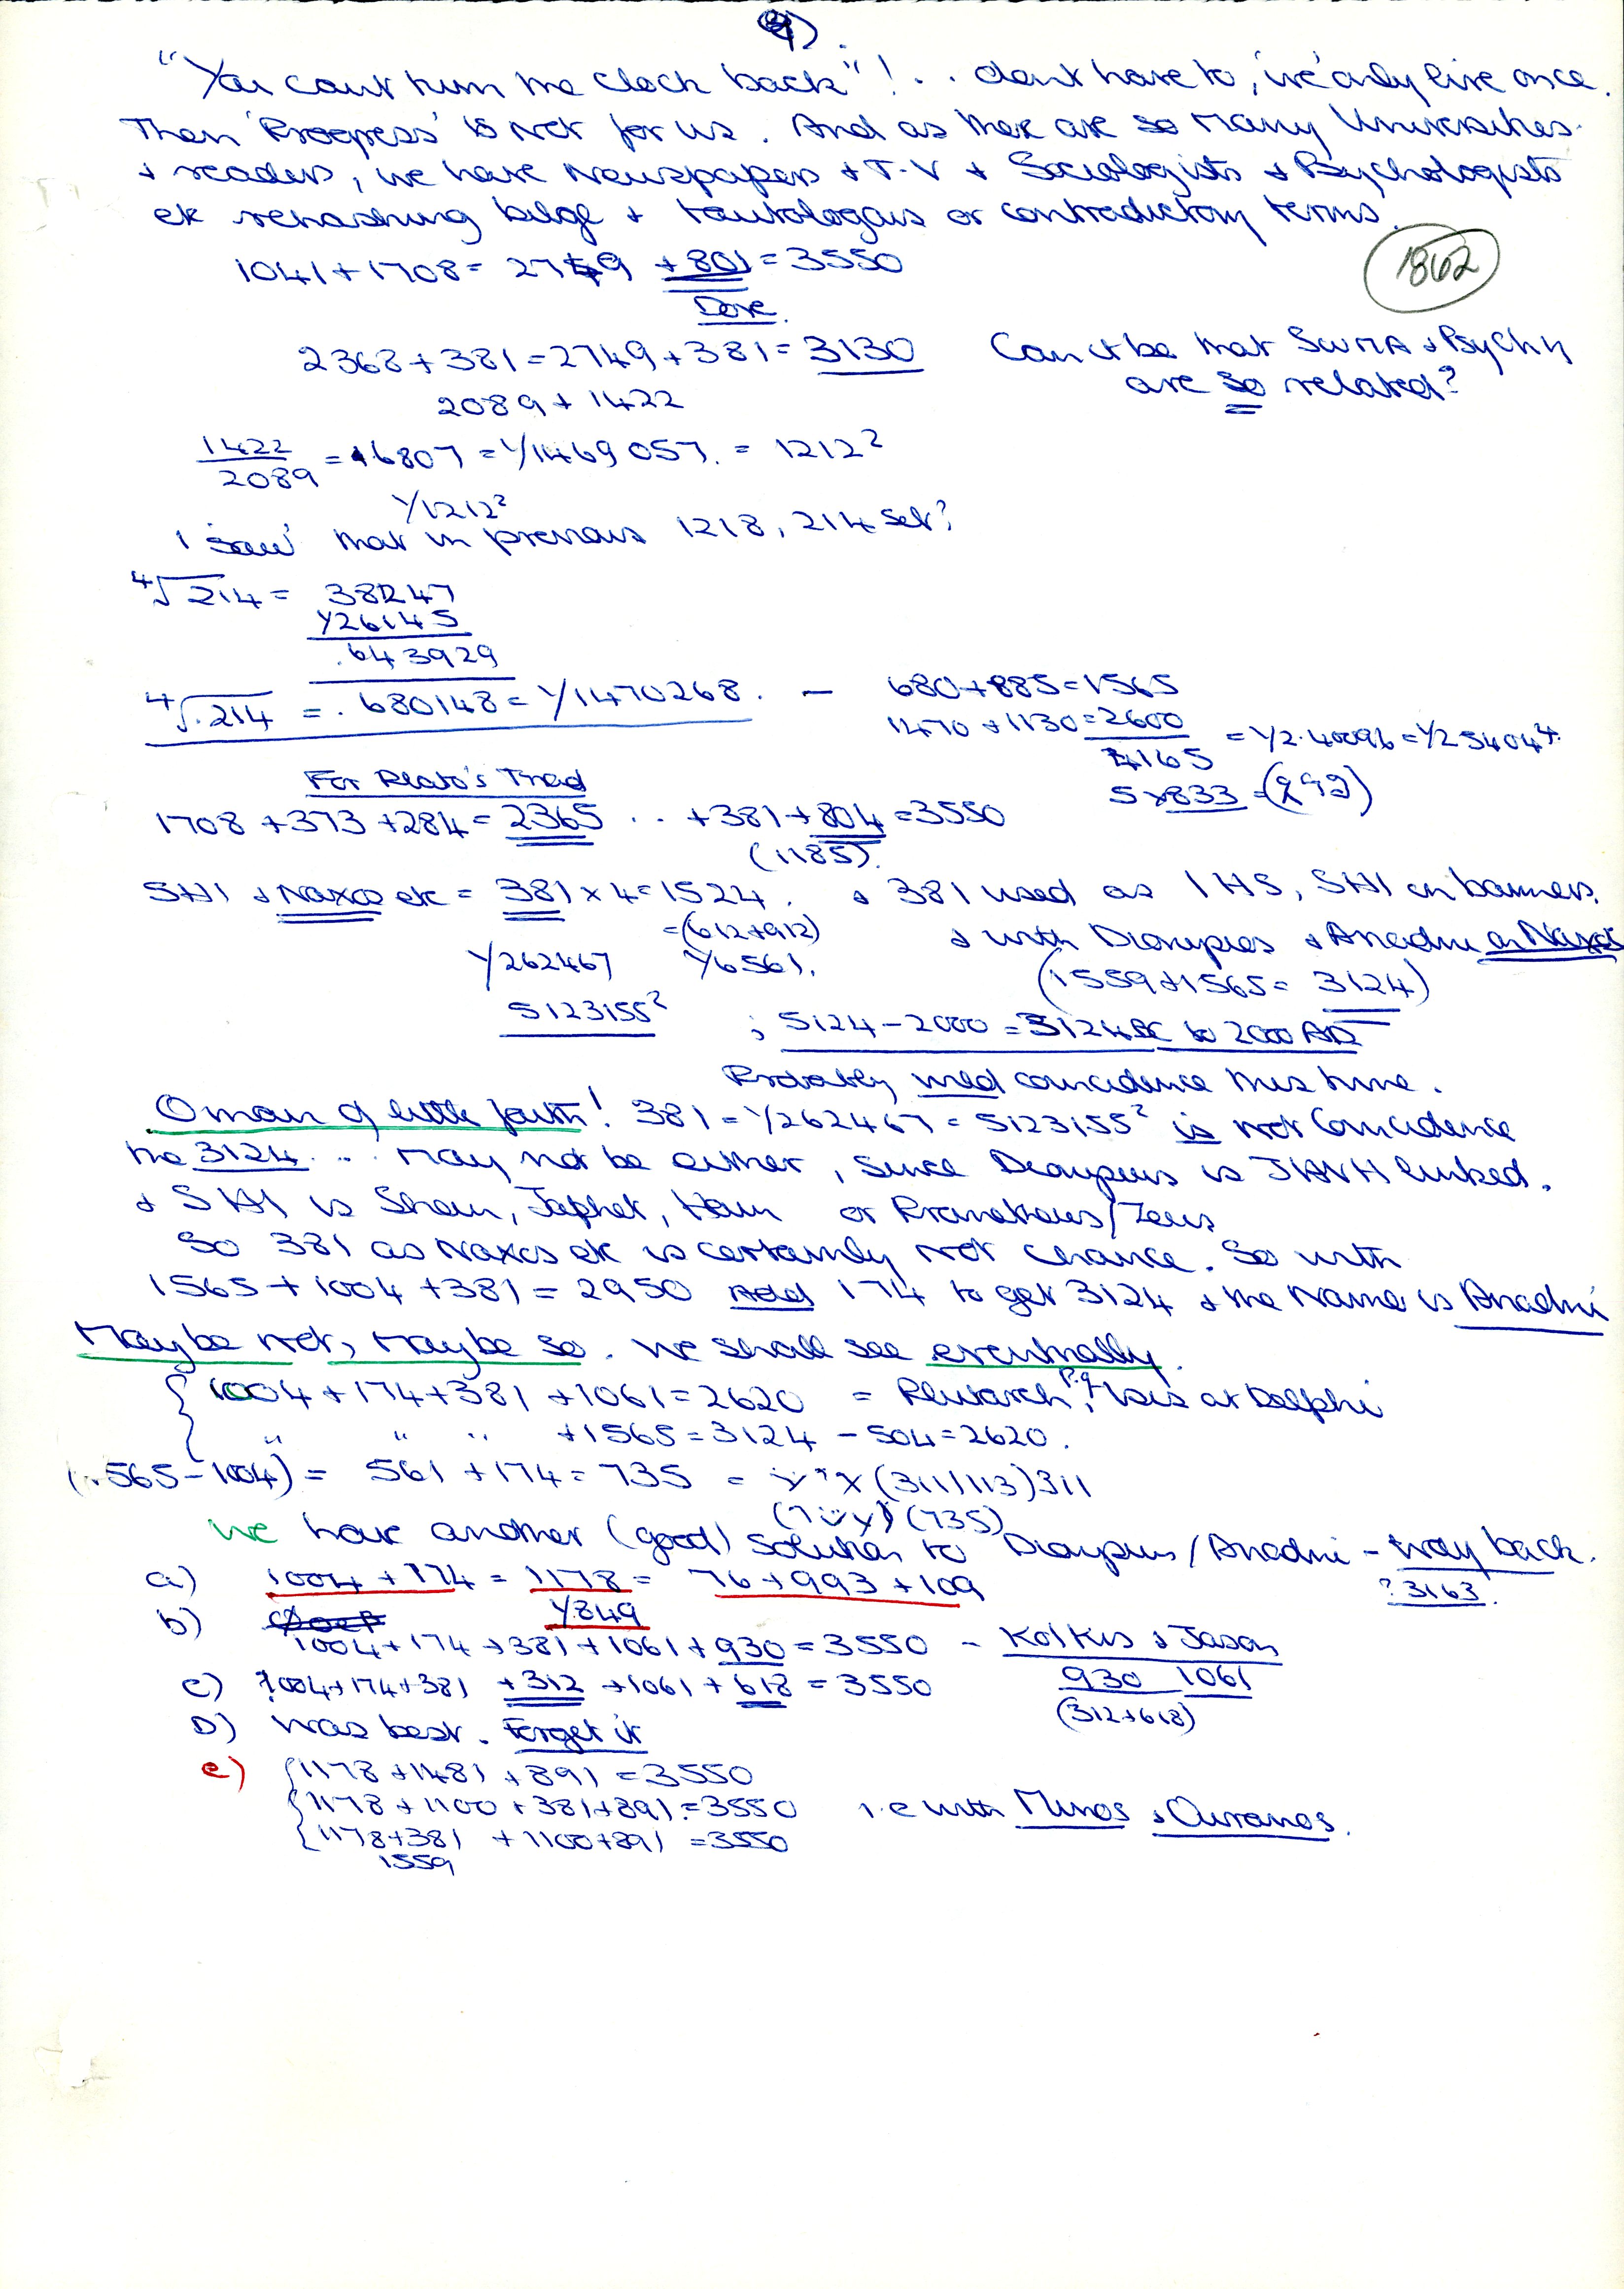 9).
"You cant turn the clock back"! .. dont have to, 'we' only live once.
Then 'Progress' is not for us. And as there are so many Universities
+ readers, we have Newspapers + T.V + Sociologists + Psychologists
etc rehashing bilge + tautologous or contradictory terms.
1041 + 1708 = 2749 + 801 = 3550
1862
Dove.
2368 + 381 = 2749 + 381 = 3130
Can it be that SWMA + Psychy
are so related?
2089 + 1422
1422
2089
= .6807 = 1/1469057. = 1212²
1/1212²
I 'saw' that in previous 1218, 214 set?
⁴√214 = 38247
1/26145
.643929
⁴√.214 = .680148 = 1/1470268. –
680 + 885 = 1565
1470 + 1130 = 2600
4165
= 1/2.40096 = 1/254044.
5 x 833 = (292)
For Plato's Triad
1708 + 373 + 284 = 2365 .. + 381 + 804 = 3550
(1185).
SHI + Naxos etc = 381 x 4 = 1524. + 381 used as IHS, SHI on banners.
= (612 + 912)
+ with Dionysios + Ariadni on Naxos
1/262467 1/6561.
(1559 + 1565 = 3124)
5123155²
; 5124 – 2000 = 3124 BC to 2000 AD
Probably mild coincidence this time.
O man of little faith! 381 = 1/262467 = 5123155² is not Coincidence
the 3124 ... may not be either, since Dionysus is JHVH linked.
+ SHI is Shem, Japhet, Ham or Prometheus/Zeus
So 381 as Naxos etc is certainly not chance. So with
1565 + 1004 + 381 = 2950 Add 174 to get 3124 + the Name is Ariadni
Maybe not, maybe so. We shall see eventually.
1004 + 174 + 381 + 1061 = 2620 = Plutarch, Isis at Delphi
" " " + 1565 = 3124 – 504 = 2620.
565 – 1004) = 561 + 174 = 735 = (311/113)311
(735)
We have another (good) solution to Dionysus / Ariadni – way back.
? 3163.
a) 1004 + 174 = 1178 = 76 + 993 + 109
1/849
b)
1004 + 174 + 381 + 1061 + 930 = 3550 – Kolkis + Jason
930 1061
c) 1004 + 174 + 381 + 312 + 1061 + 618 = 3550
(312 + 618)
D) was best. Forget it
e) 1178 + 1481 + 891 = 3550
1178 + 1100 + 381 + 891 = 3550 i.e with Minos + Ouranos.
1178 + 381 + 1100 + 891 = 3550
1559